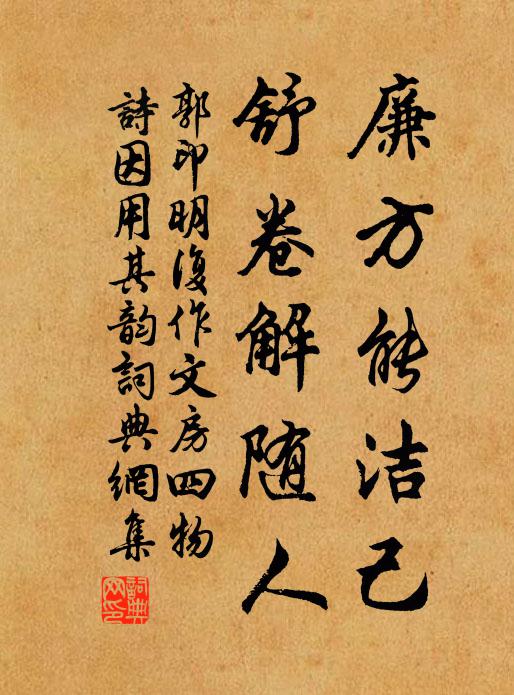 廉方能洁己
舒卷解随人
郭印明復作文房四物
詩因用其韵詞典網集
詞典网印